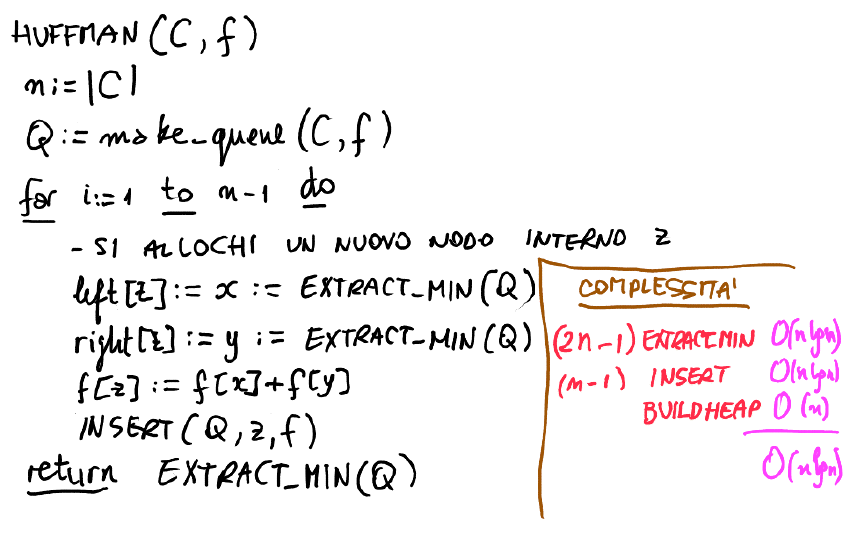 HUFFMAN (C, f)
n := |C|
Q := make_queue (C, f)
for i := 1 to n-1 do
- SI ALLOCHI UN NUOVO NODO INTERNO z
left[z] := x := EXTRACT_MIN(Q)
right[z] := y := EXTRACT_MIN(Q)
f[z] := f[x]+f[y]
INSERT(Q, z, f)
return EXTRACT_MIN(Q)
COMPLESSITA'
(2n-1) EXTRACT.MIN O(n lg n)
(n-1) INSERT O(n lg n)
BUILDHEAP O(n)
O(n lg n)